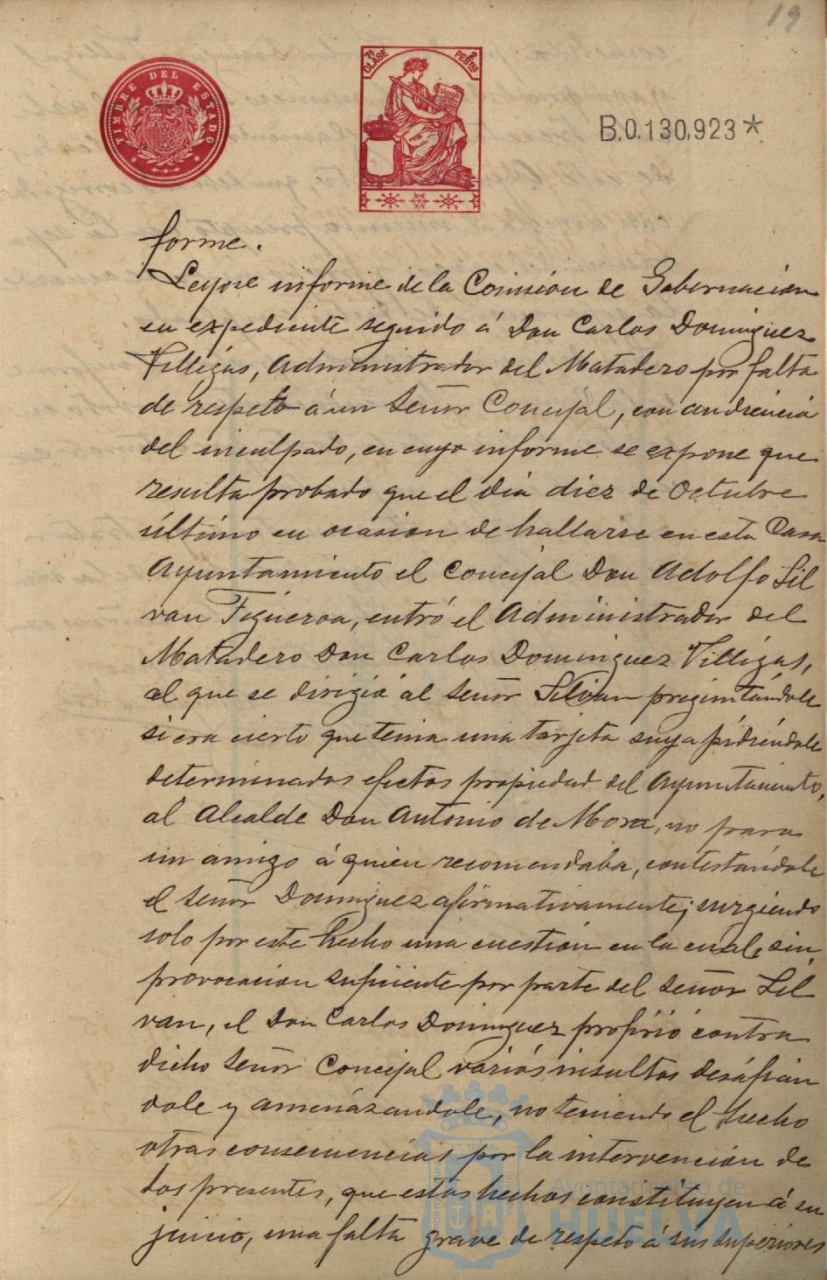 19
TIMBRE DEL ESTADO
7ª CLASE
2 PESETAS
B.0.130,923*
forme.
Leyose informe de la Comisión de Gobernación
en expediente seguido á Don Carlos Dominguez
Villigas, Administrador del Matadero por falta
de respeto á un Señor Concejal, con audiencia
del inculpado, en cuyo informe se expone que
resulta probado que el dia diez de Octubre
último en ocasion de hallarse en esta Casa
Ayuntamiento el Concejal Don Adolfo Sil
van Figueroa, entró el Administrador del
Matadero Don Carlos Dominguez Villigas,
al que se dirigió al Señor Silvan preguntándole
si era cierto que tenia una tarjeta suya pidiéndole
determinados efectos propiedad del Ayuntamiento,
al Alcalde Don Antonio de Mora, no para
un amigo á quien recomendaba, contestándole
el señor Dominguez afirmativamente; surgiendo
solo por este hecho una cuestión en la cual, sin
provocacion suficiente por parte del señor Sil
van, el Don Carlos Dominguez profirió contra
dicho Señor Concejal varios insultos desafian
dole y amenazandole, no teniendo el hecho
otras consecuencias por la intervención de
los presentes, que estos hechos constituyen á su
juicio, una falta grave de respeto á sus superiores
Ayuntamiento de
HUELVA